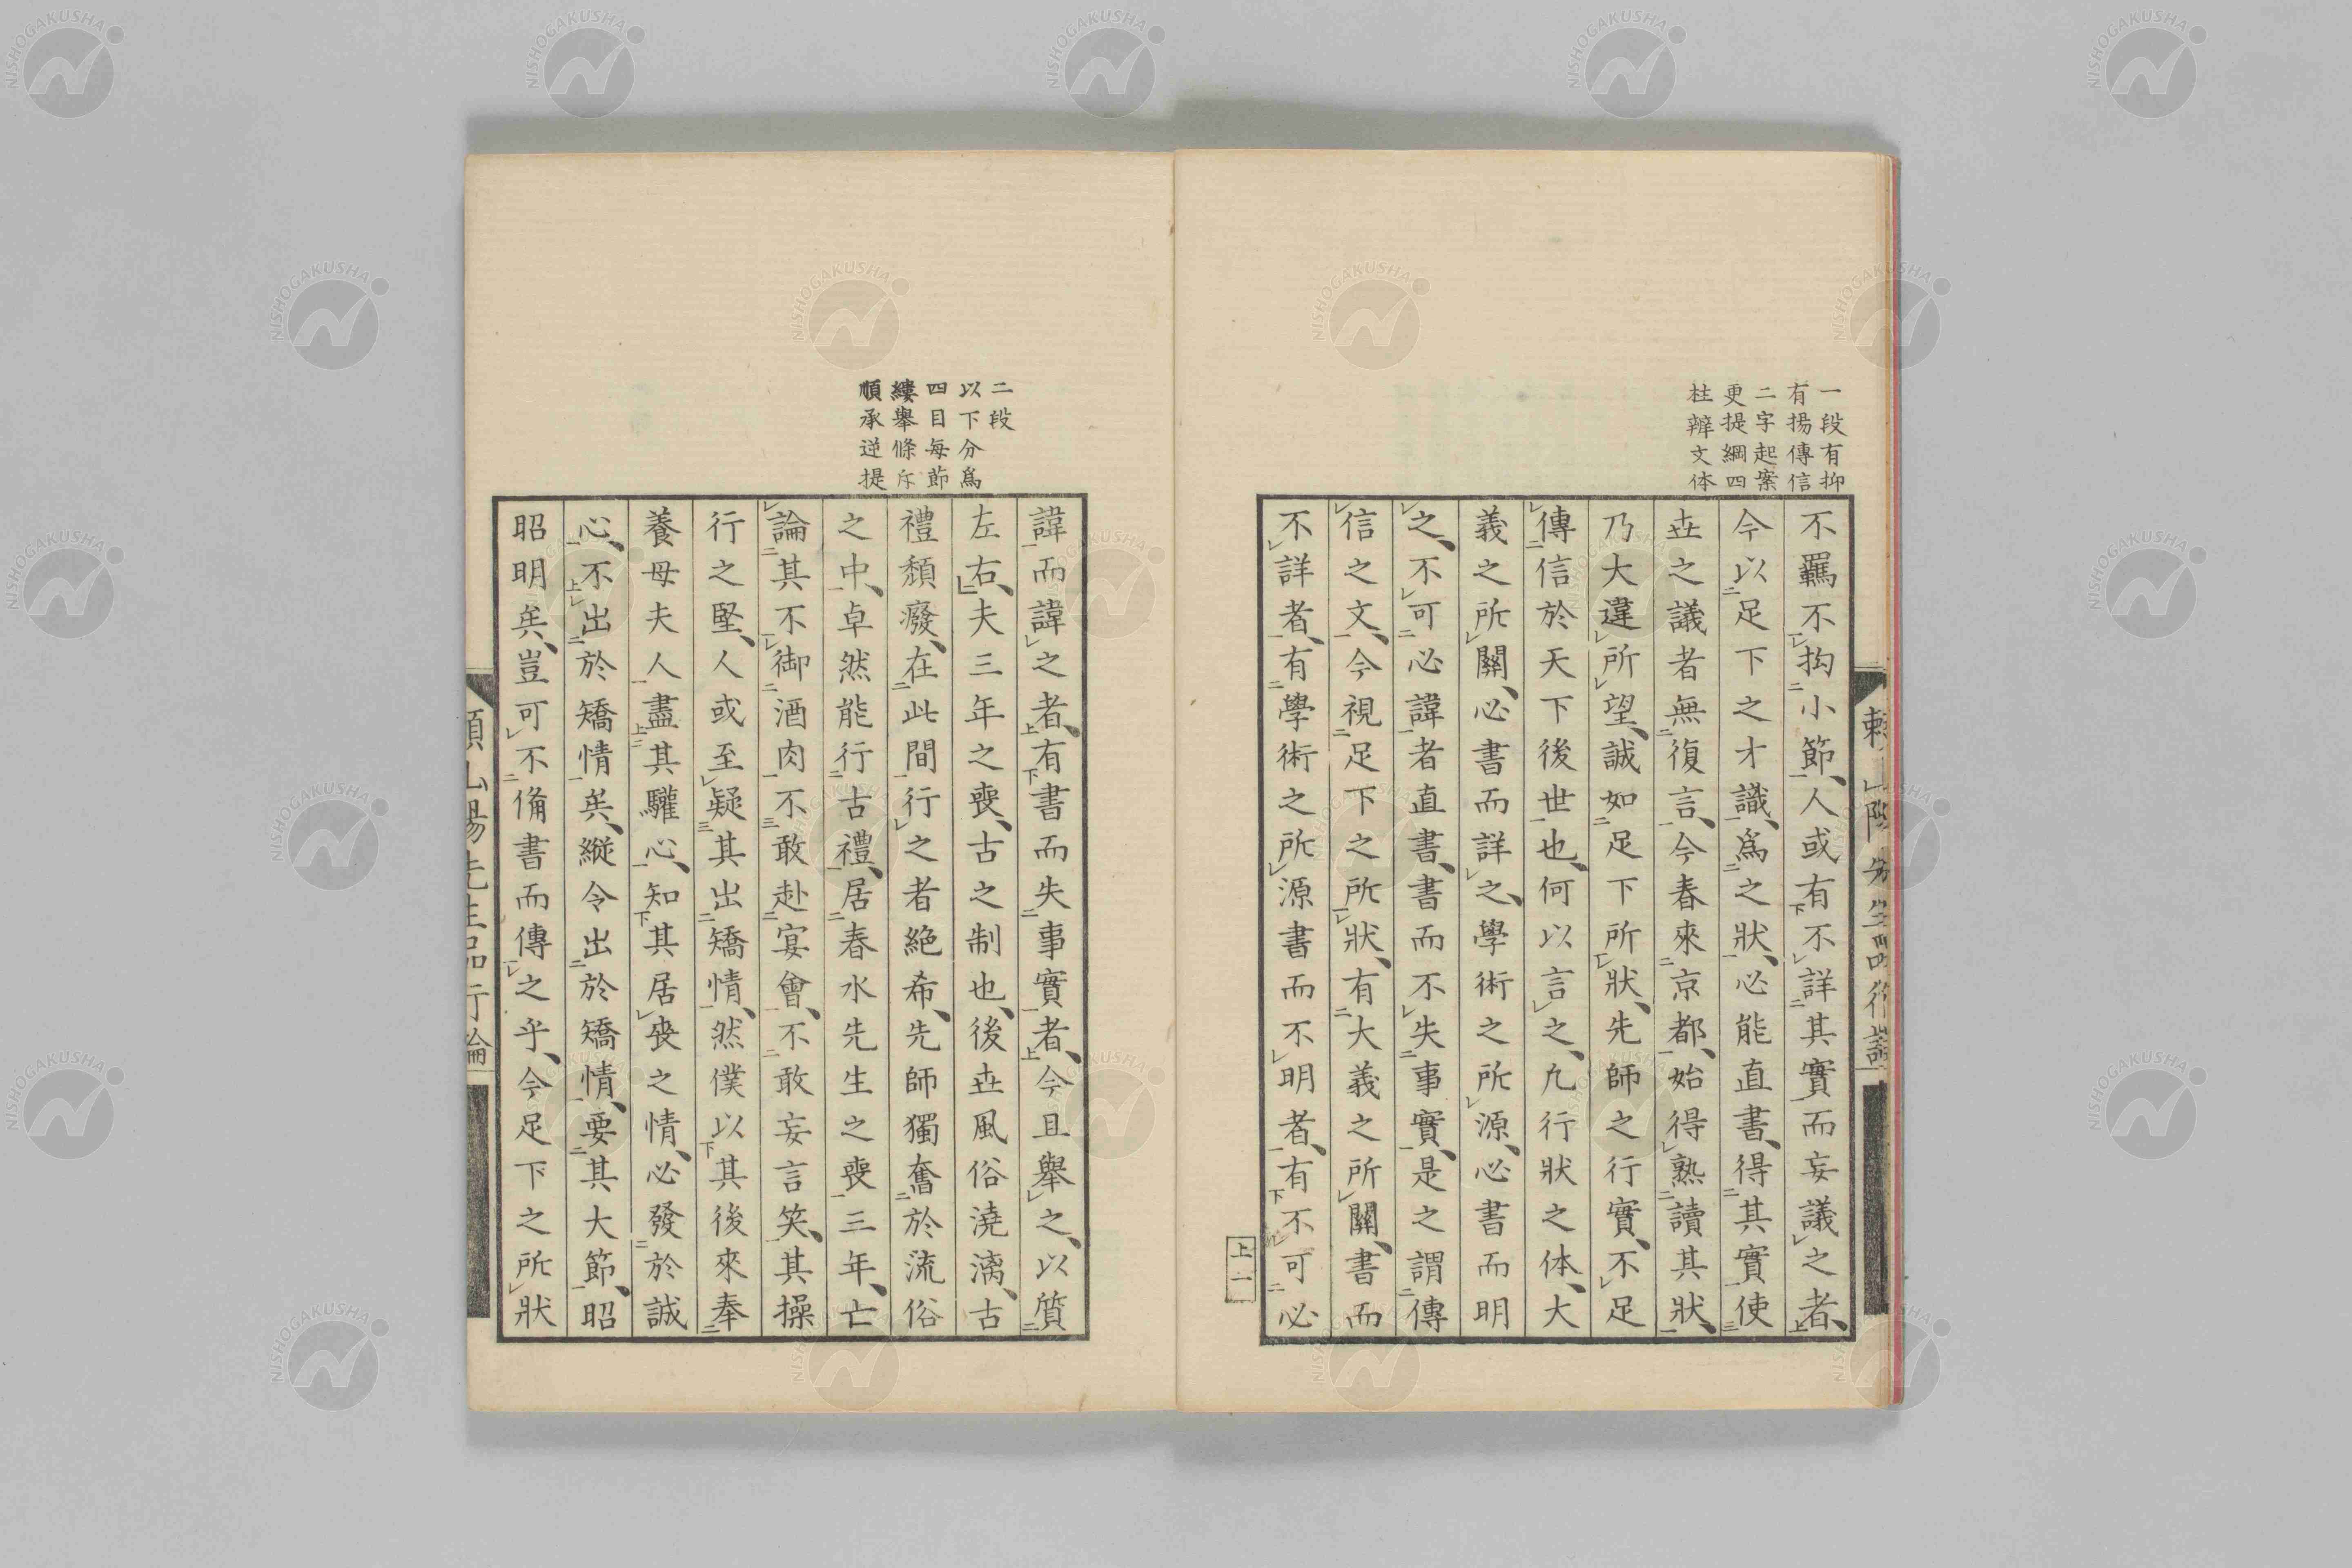 一段有抑
有揚傳信
二字起案
更提綱四
柱辨文体
不羈不拘小節、人或有不詳其實而妄議之者、
今以足下之才識、爲之狀、必能直書、得其實使
𠀍之議者無復言、今春來京都、始得熟讀其狀、
乃大違所望、誠如足下所狀、先師之行實、不足
傳信於天下後世也、何以言之、凢行狀之体、大
義之所關、必書而詳之、學術之所源、必書而明
之、不可必諱者直書、書而不失事實、是之謂傳
信之文、今視足下之所狀、有大義之所關、書而
不詳者、有學術之所源書而不明者、有不可必
上一
二段
以下分爲
四目每節
縷舉條斥
順承逆提
諱而諱之者、有書而失事實者、今且舉之、以質
左右、夫三年之喪、古之制也、後𠀍風俗澆漓、古
禮頽癈、在此間行之者絶希、先師獨奮於流俗
之中、卓然能行古禮、居春水先生之喪三年、亡
論其不御酒肉不敢赴宴會、不敢妄言笑、其操
行之堅、人或至疑其出矯情、然僕以其後來奉
養母夫人盡其驩心、知其居喪之情、必發於誠
心、不出於矯情矣、縦令出於矯情、要其大節、昭
昭明矣、豈可不備書而傳之乎、今足下之所狀